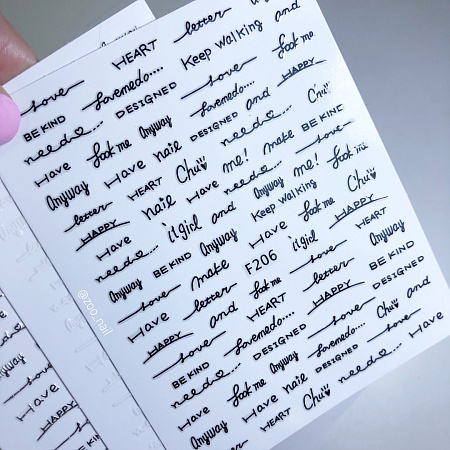 letter and
HEART Keep walking look me
love lovemedo.... love HAPPY
BE KIND DESIGNED and Chu
need.... Anyway DESIGNED need.... BE KIND
Have look me nail me! make love
Anyway Have Chu need.... look me
letter HEART Have Anyway me! Chu
HAPPY nail and Keep walking look me HAPPY
Have il girl Have HEART
need.... BE KIND Anyway il girl Anyway
Anyway make F206 love BE KIND
love letter look me letter DESIGNED
Have and HEART HAPPY and
HAPPY lovemedo.... love Chu
love DESIGNED lovemedo.... love Have
BE KIND Anyway DESIGNED need....
need.... look me nail Chu
Have Have HEART
Anyway
letter
@zoo_nail
Anyway
love
Have
HAPPY
love
BE KIN